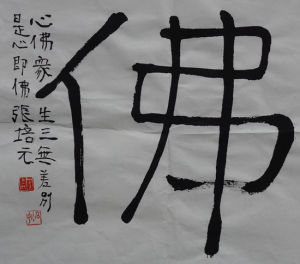 佛
心佛衆生三無差別
是心即佛 張培元